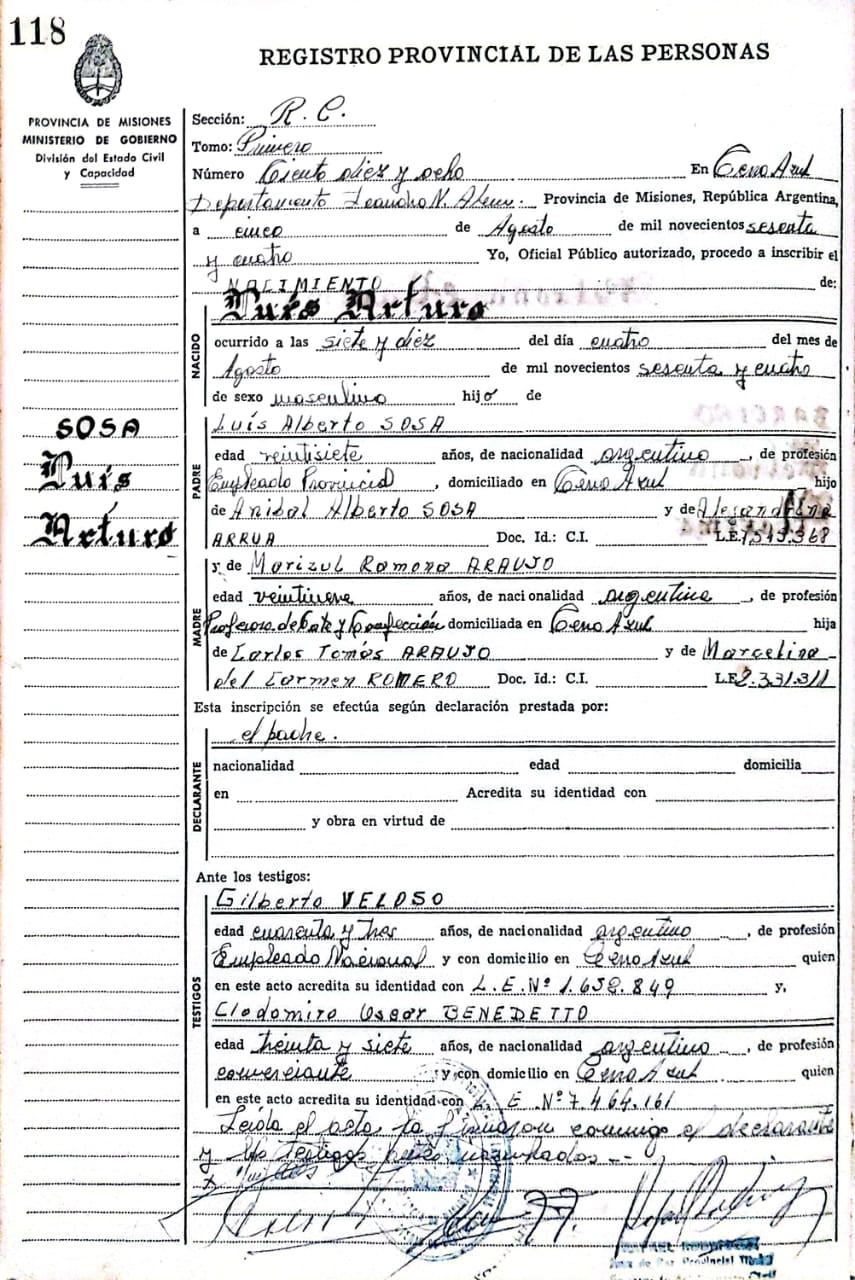 118
REGISTRO PROVINCIAL DE LAS PERSONAS
PROVINCIA DE MISIONES
MINISTERIO DE GOBIERNO
División del Estado Civil
y Capacidad
SOSA
Luís
Arturo
Sección: R. C.
Tomo: Primero
Número Ciento diez y ocho En Cerro Azul
Departamento Leandro N. Alem. Provincia de Misiones, República Argentina,
a cinco de Agosto de mil novecientos sesenta
y cuatro Yo, Oficial Público autorizado, procedo a inscribir el
NACIMIENTO de:
NACIDO
Luís Arturo
ocurrido a las siete y diez del día cuatro del mes de
Agosto de mil novecientos sesenta y cuatro
de sexo masculino hijo de
PADRE
Luís Alberto SOSA
edad veintisiete años, de nacionalidad argentino, de profesión
Empleado Provincial, domiciliado en Cerro Azul hijo
de Anibal Alberto SOSA y de Alejandrina
ARRUA Doc. Id.: C.I. L.E.
MADRE
y de Marizul Ramona ARAUJO
edad veintinueve años, de nacionalidad argentina, de profesión
Profesora de Corte y Confección domiciliada en Cerro Azul hija
de Carlos Tomás ARAUJO y de Marcelina
del Carmen ROMERO Doc. Id.: C.I. L.E. 2.331.311
Esta inscripción se efectúa según declaración prestada por:
el padre.
DECLARANTE
nacionalidad edad domicilia
en Acredita su identidad con
y obra en virtud de
Ante los testigos:
TESTIGOS
Gilberto VELOSO
edad cuarenta y tres años, de nacionalidad argentino, de profesión
Empleado Nacional y con domicilio en Cerro Azul quien
en este acto acredita su identidad con L.E.Nº 1.658.849 y,
Clodomiro Oscar BENEDETTO
edad treinta y siete años, de nacionalidad argentino, de profesión
comerciante y con domicilio en Cerro Azul quien
en este acto acredita su identidad con L. E Nº 7.464.161
Leída el acta, la firmaron conmigo el declarante
y los testigos